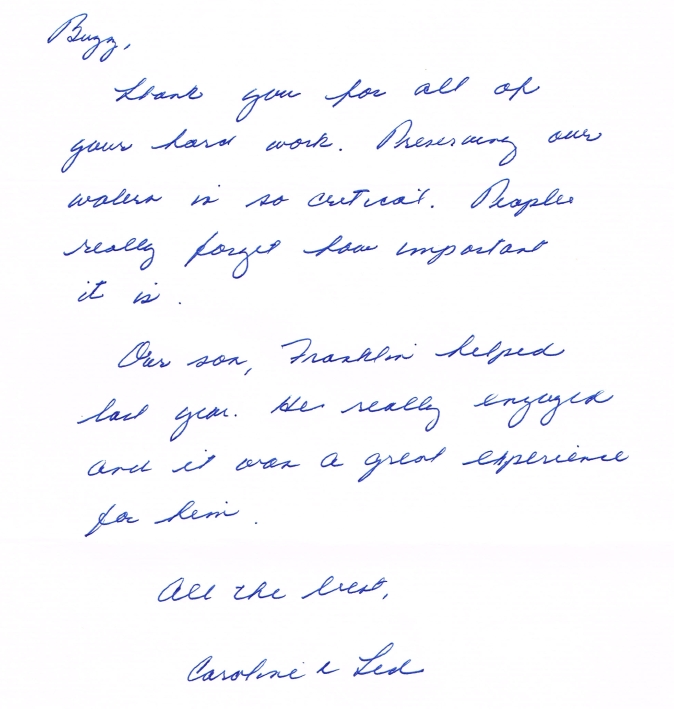 Buzz,
Thank you for all of
your hard work. Preserving our
waters is so critical. People
really forget how important
it is.
Our son, Franklin helped
last year. He really engaged
and it was a great experience
for him.
All the best,
Caroline & Ted